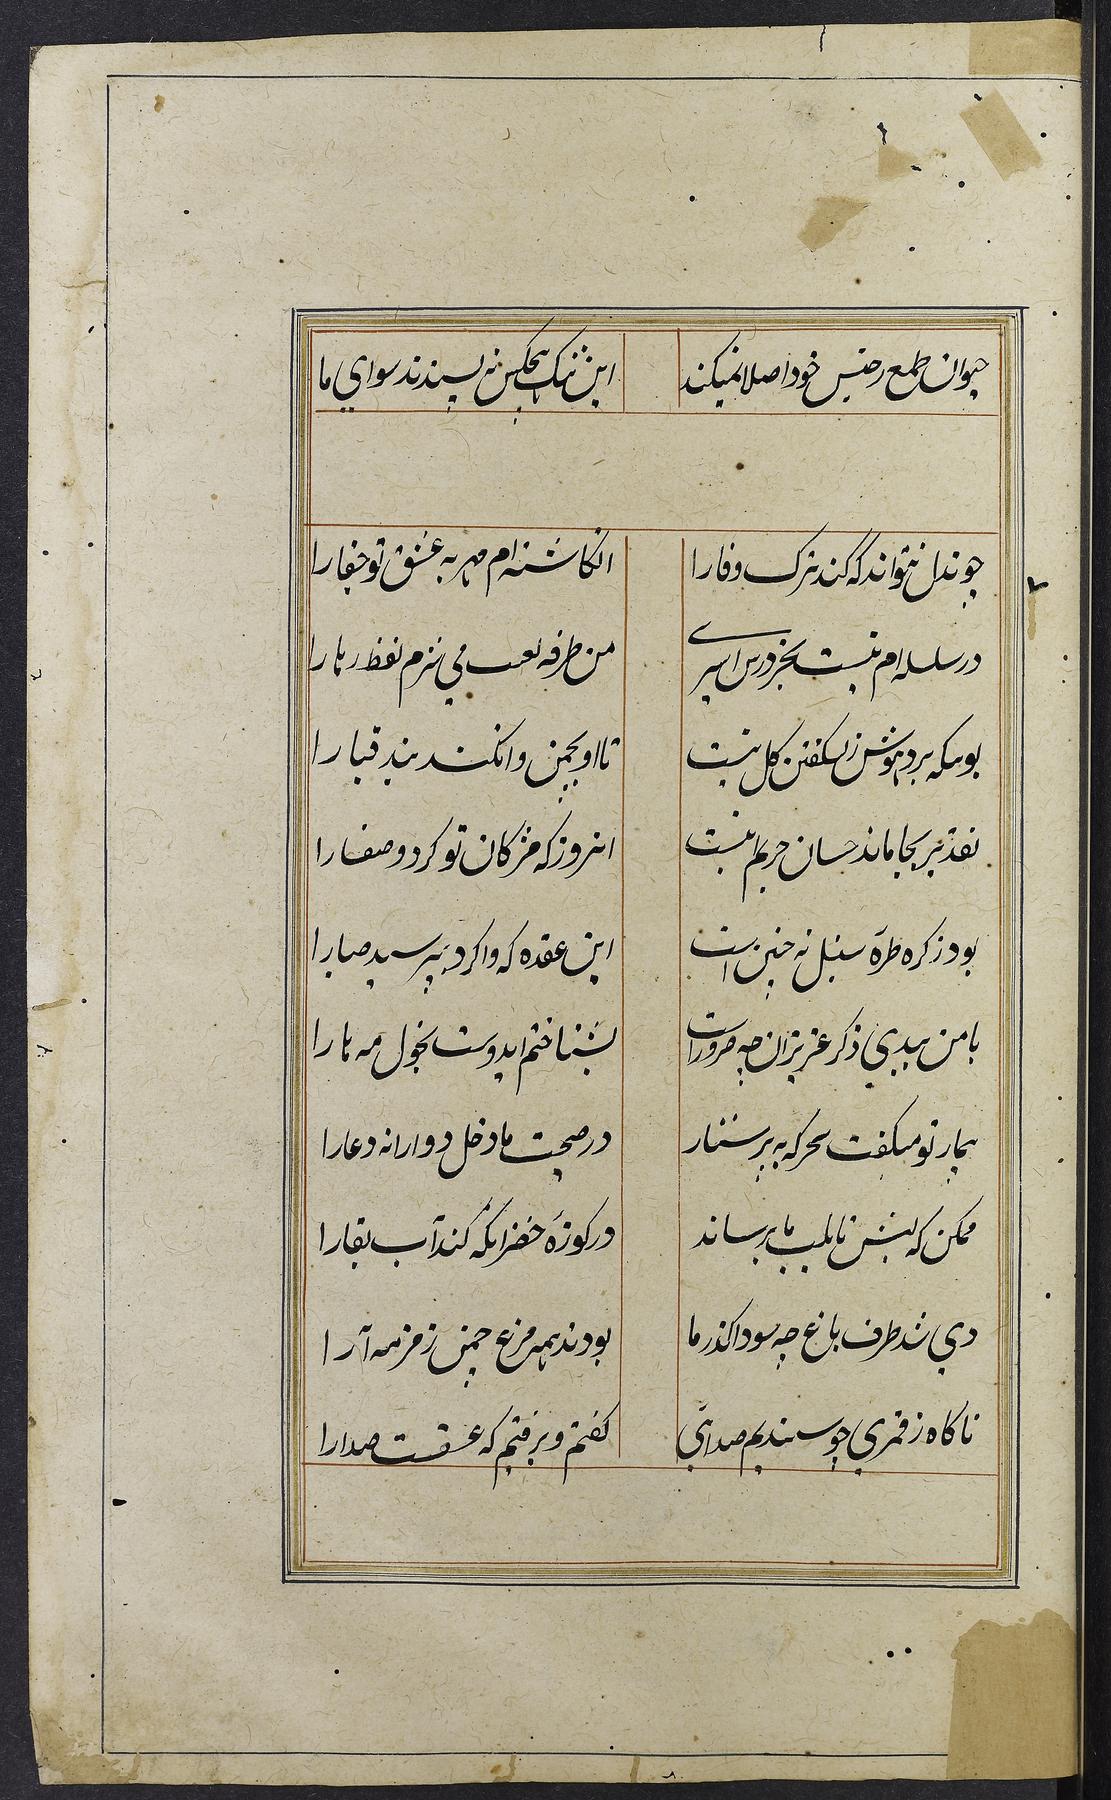 حیوان طمع ز جنس خود اصلا نمیکند این ننک هیچکس نه پسندد سوای ما
چوندل نتواند که کند ترک وفا را انکاشته ام مهر به عشق تو جفا را
در سلسله ام نیست بجز درس اسیری من طرفه لعب می نبرم لفظ رها را
بو میکه برد هوش ز لشکفتن کل نیست تا او بچمن وانکند بند قبا را
تقدیر بجا ماند حسان حریم نیست انروز که مژکان تو کرد وصف را
بود ز کره طره سنبل نه چنین است این عقده که واکرد بپرسید صبا را
با من ببدی ذکر عزیزان چه ضرور است بشناختم ایدوست بخول مه ما را
بیمار تو میکفت سحر که به پرستار در صحبت ما دخل دوا را نه دعا را
ممکن که لبش تا بلب ما برساند در کوزه خضر انکه کند آب بقا را
دی شد طرف باغ چه سودا کذر ما بودند همه مرغ چمن زمزمه آرا
ناکاه ز قمری چو شنیدیم صدائی کفتم و برفتم که عشقست صدا را